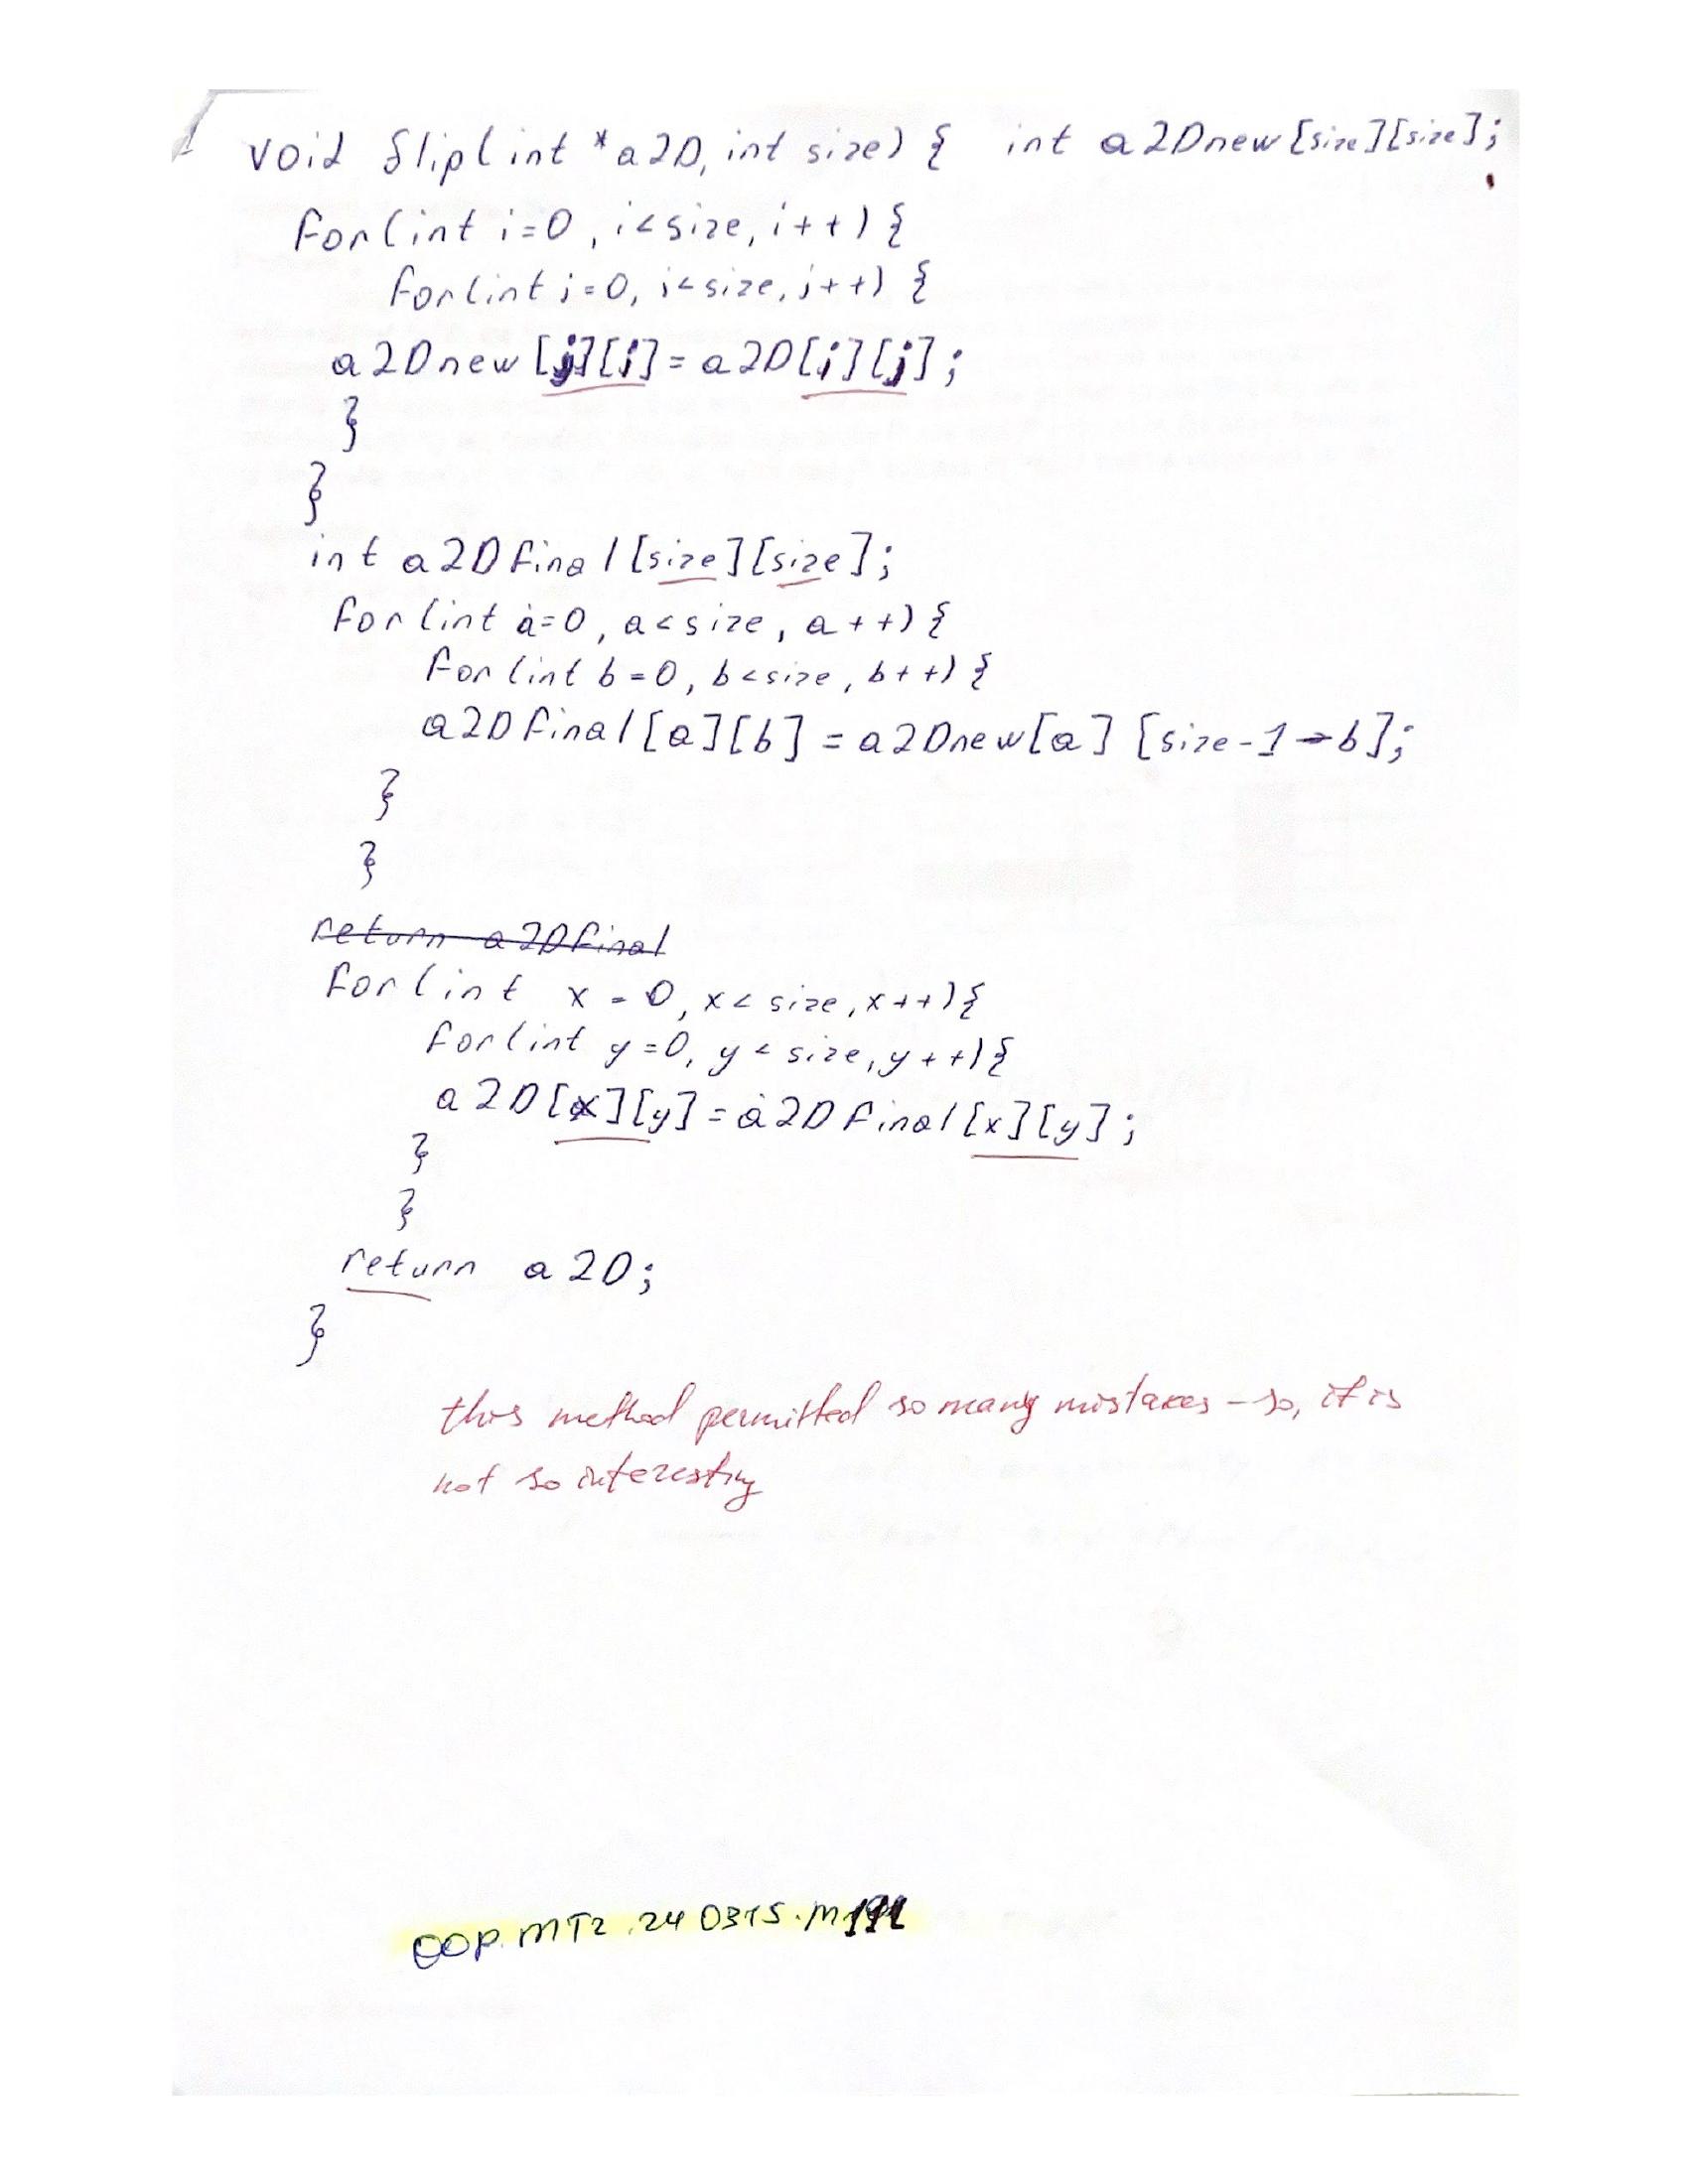 void flip(int *a2D, int size) { int a2Dnew[size][size];
for(int i=0, i<size, i++) {
for(int j=0, j<size, j++) {
a2Dnew[j][i]=a2D[i][j];
}
}
int a2Dfinal[size][size];
for(int a=0, a<size, a++) {
for(int b=0, b<size, b++) {
a2Dfinal[a][b] = a2Dnew[a][size-1-b];
}
}
return a2Dfinal
for(int x=0, x<size, x++) {
for(int y=0, y<size, y++) {
a2D[x][y]=a2Dfinal[x][y];
}
}
return a2D;
}
this method permitted so many mistakes - so, it is
not so interesting
OOP.MT2.240315.M